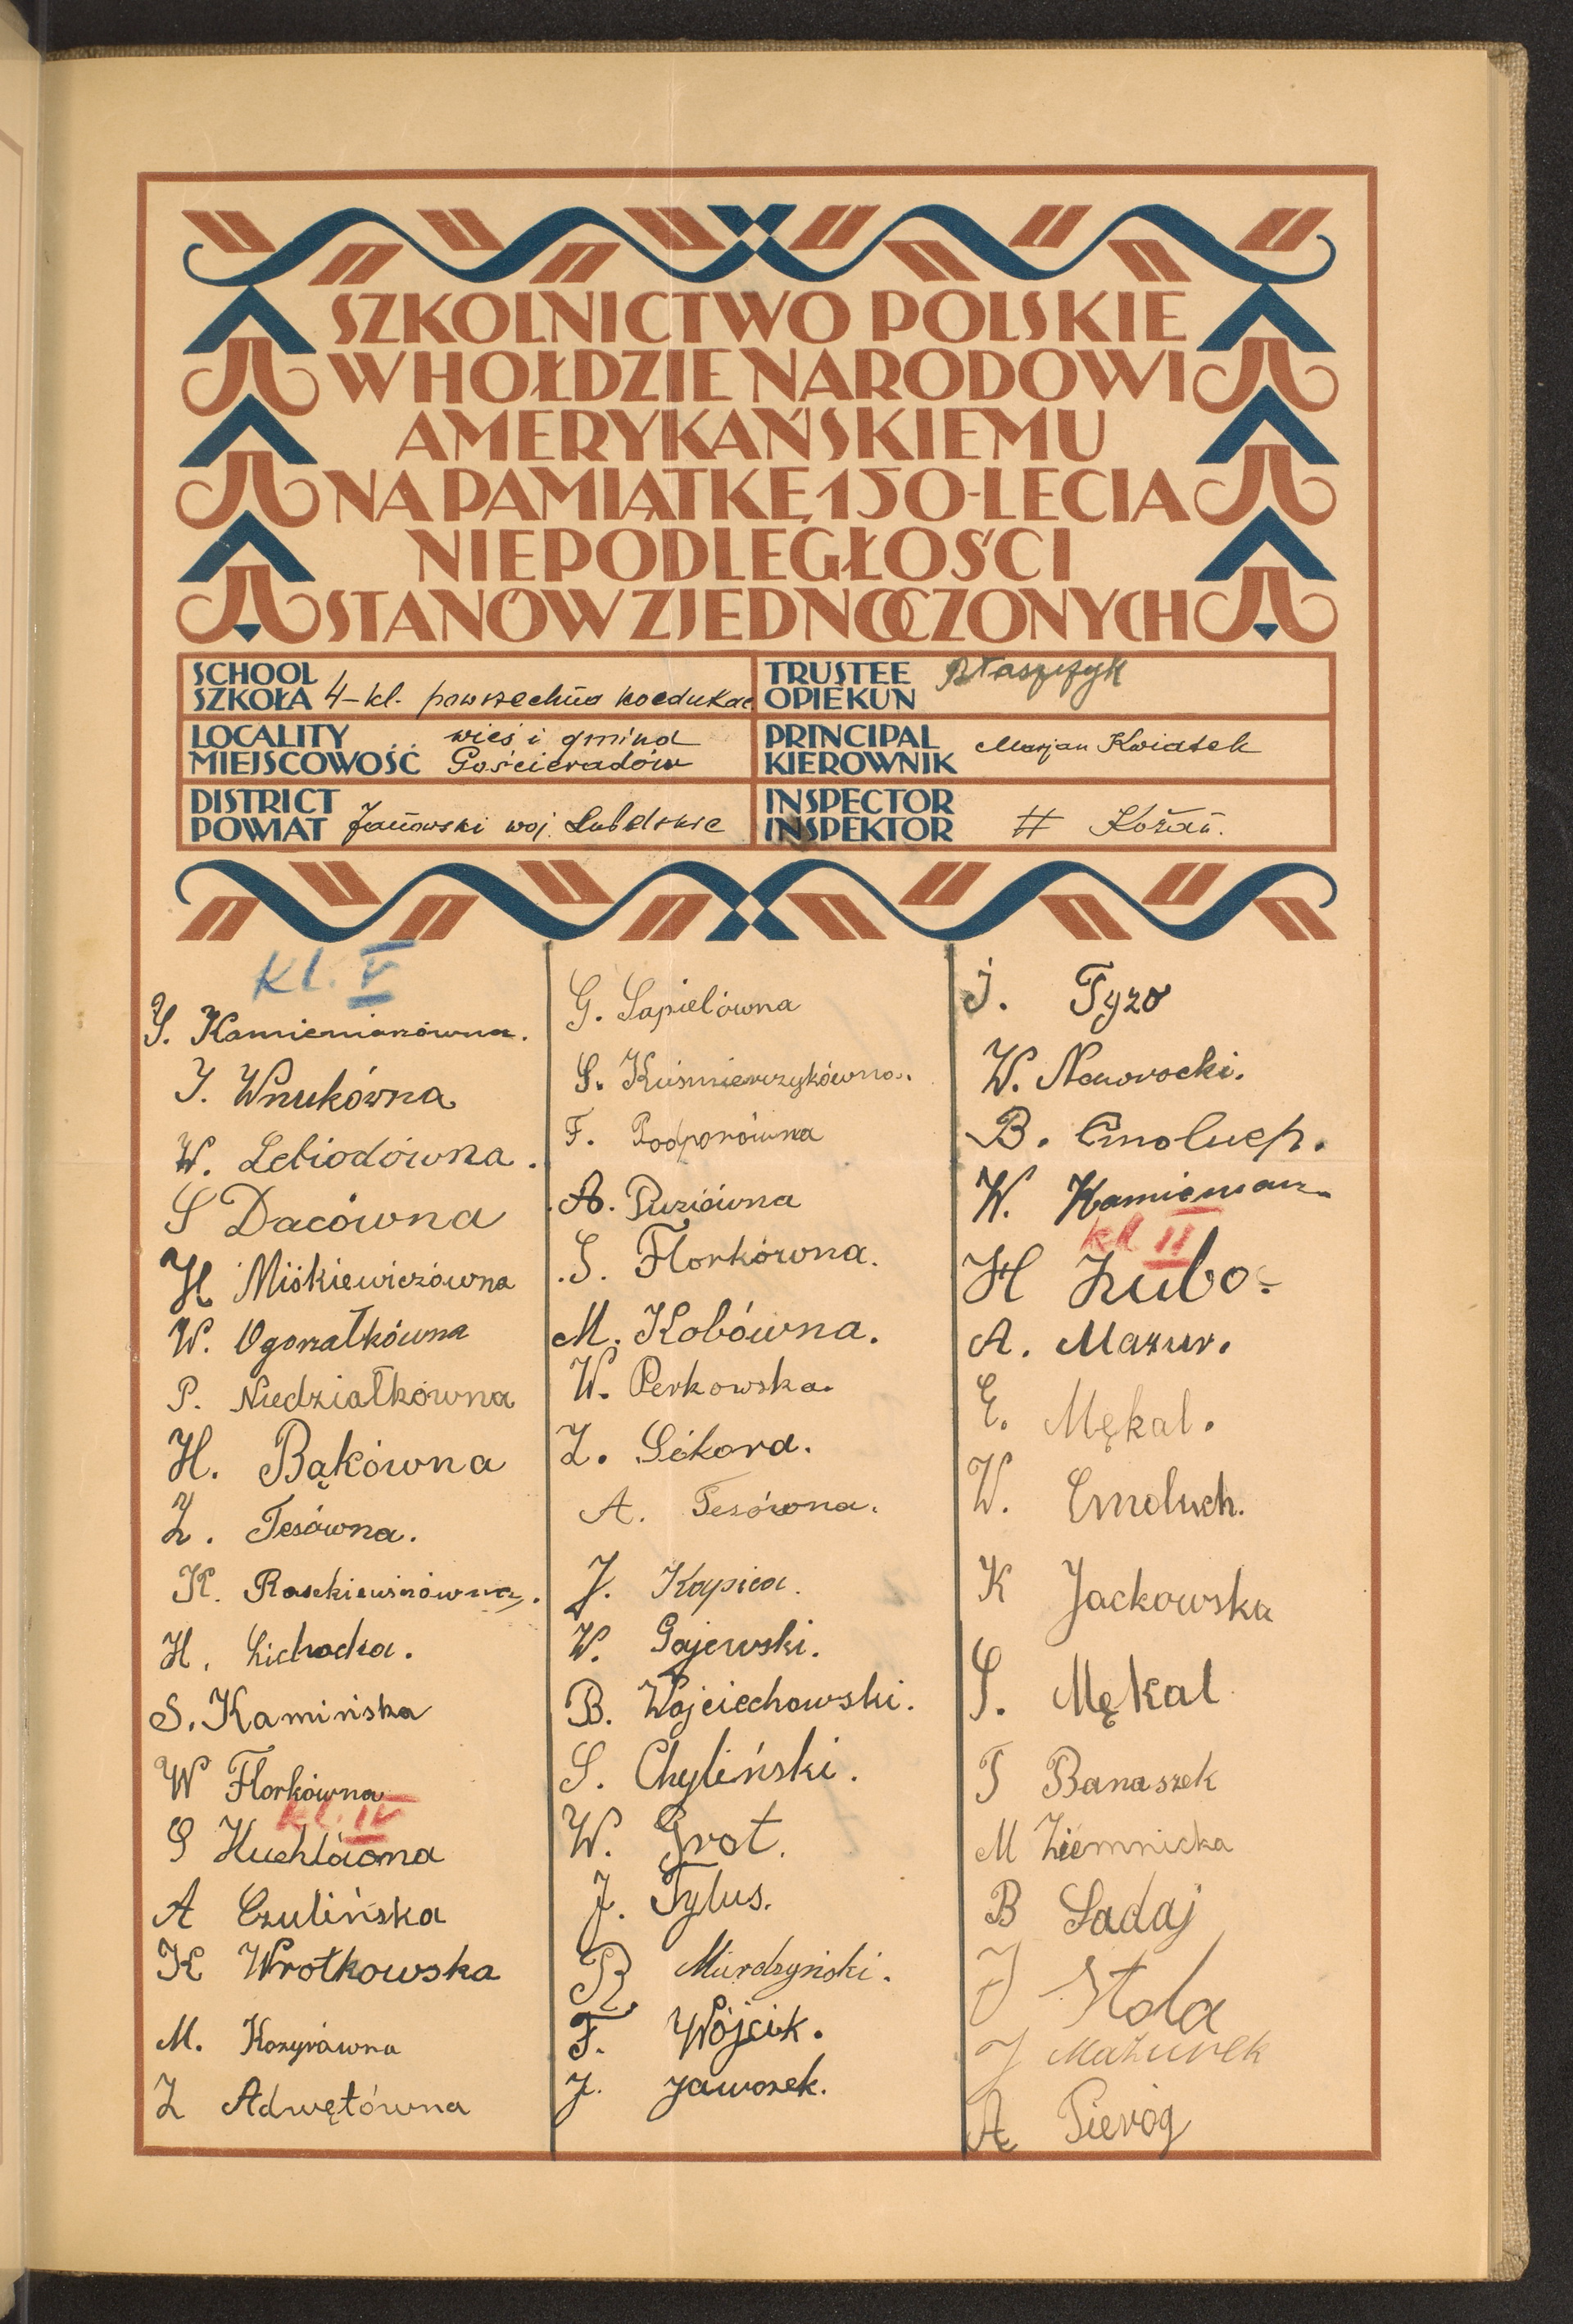 SZKOLNICTWO POLSKIE
W HOŁDZIE NARODOWI
AMERYKAŃSKIEMU
NA PAMIĄTKĘ 150-LECIA
NIEPODLEGŁOŚCI
STANÓW ZJEDNOCZONYCH
SCHOOL
SZKOŁA 4-kl. powszechna koedukac
TRUSTEE
OPIEKUN Błaszczyk
LOCALITY
MIEJSCOWOŚĆ wieś i gmina
Gościeradów
PRINCIPAL
KIEROWNIK Marjan Kwiatek
DISTRICT
POWIAT Janowski woj. Lubelskie
INSPECTOR
INSPEKTOR
kl. V
S. Kamieniarzówna.
J. Wnukówna
W. Lebiodówna.
S Dacówna
H Miśkiewiczówna
W. Ogonałkówna
P. Niedziałkówna
H. Bąkówna
Z. Tesówna.
K. Raszkiewiczówna.
H. Lichocka.
S. Kamińska
W Florkówna
kl. IV
S
A Czulińska
K Wrotkowska
M. Kozyrówna
Z Adwętówna
G. Sapielówna
S. Kuśmierczykówna.
F. Podporówna
A. Puziówna
S. Florkówna.
M. Kobówna.
W. Perkowska.
Z. Sikora.
A. Tesówna.
J. Kapica.
W. Gajewski.
B. Wojciechowski.
S. Chyliński.
W. Grot.
J. Tylus.
R. Murdzyński.
F. Wójcik.
J. Jaworek.
J. Tyzo
W. Nawrocki.
B. Cmoluch.
W. Kamieniarz.
kl II
H
A. Mazur.
E. Mękal.
W. Cmoluch.
K Jackowska
S. Mękal
T Banaszek
M Ziemnicka
B Sadaj
J Stola
J Mazurek
A Pieróg